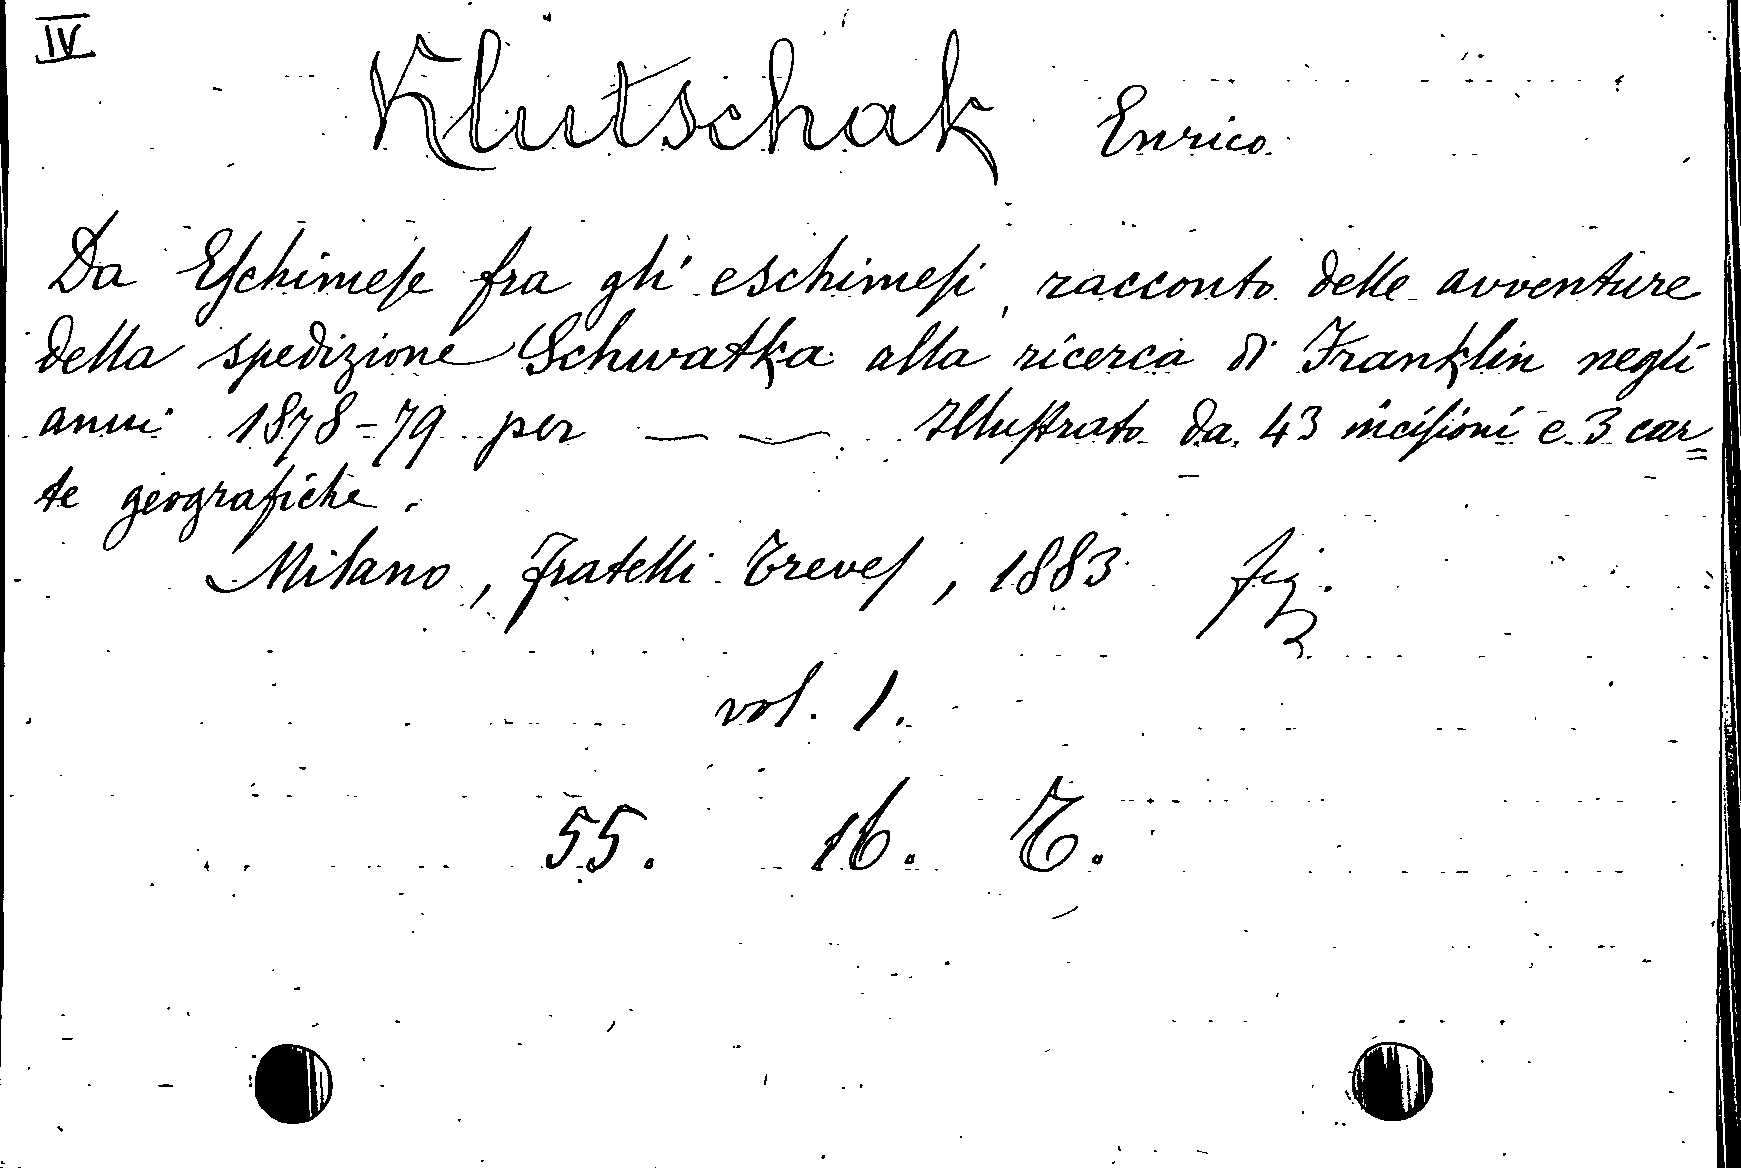 IV
Klutschak Enrico
Da Eschimese fra gli eschimesi, racconto delle avventure
della spedizione Schwatka alla ricerca di Franklin negli
anni 1878-79 per — — . Illustrato da 43 incisioni e 3 car=
te geografiche.
Milano, Fratelli Treves, 1883 fig.
vol. 1.
55. 16. C.